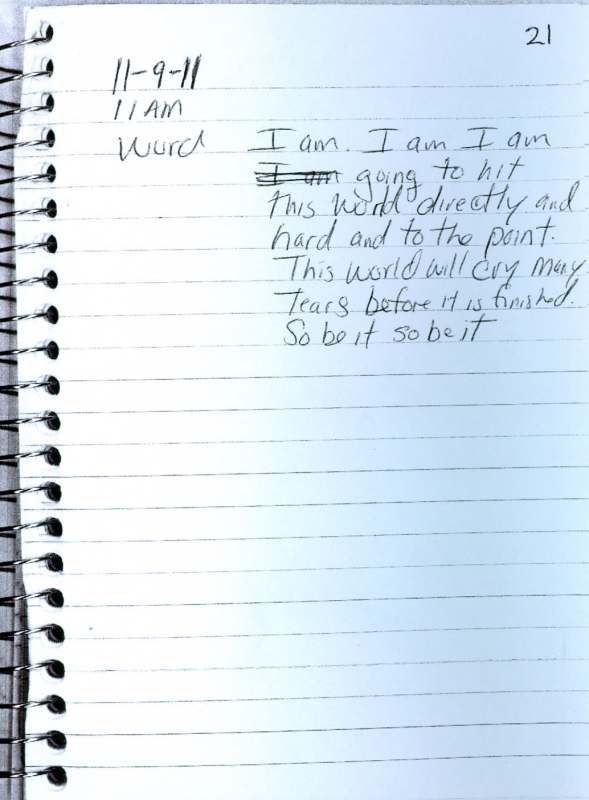 21
11-9-11
11 AM
Word I am. I am I am
I am going to hit
this world directly and
hard and to the point.
This world will cry many
Tears before it is finished.
So be it so be it